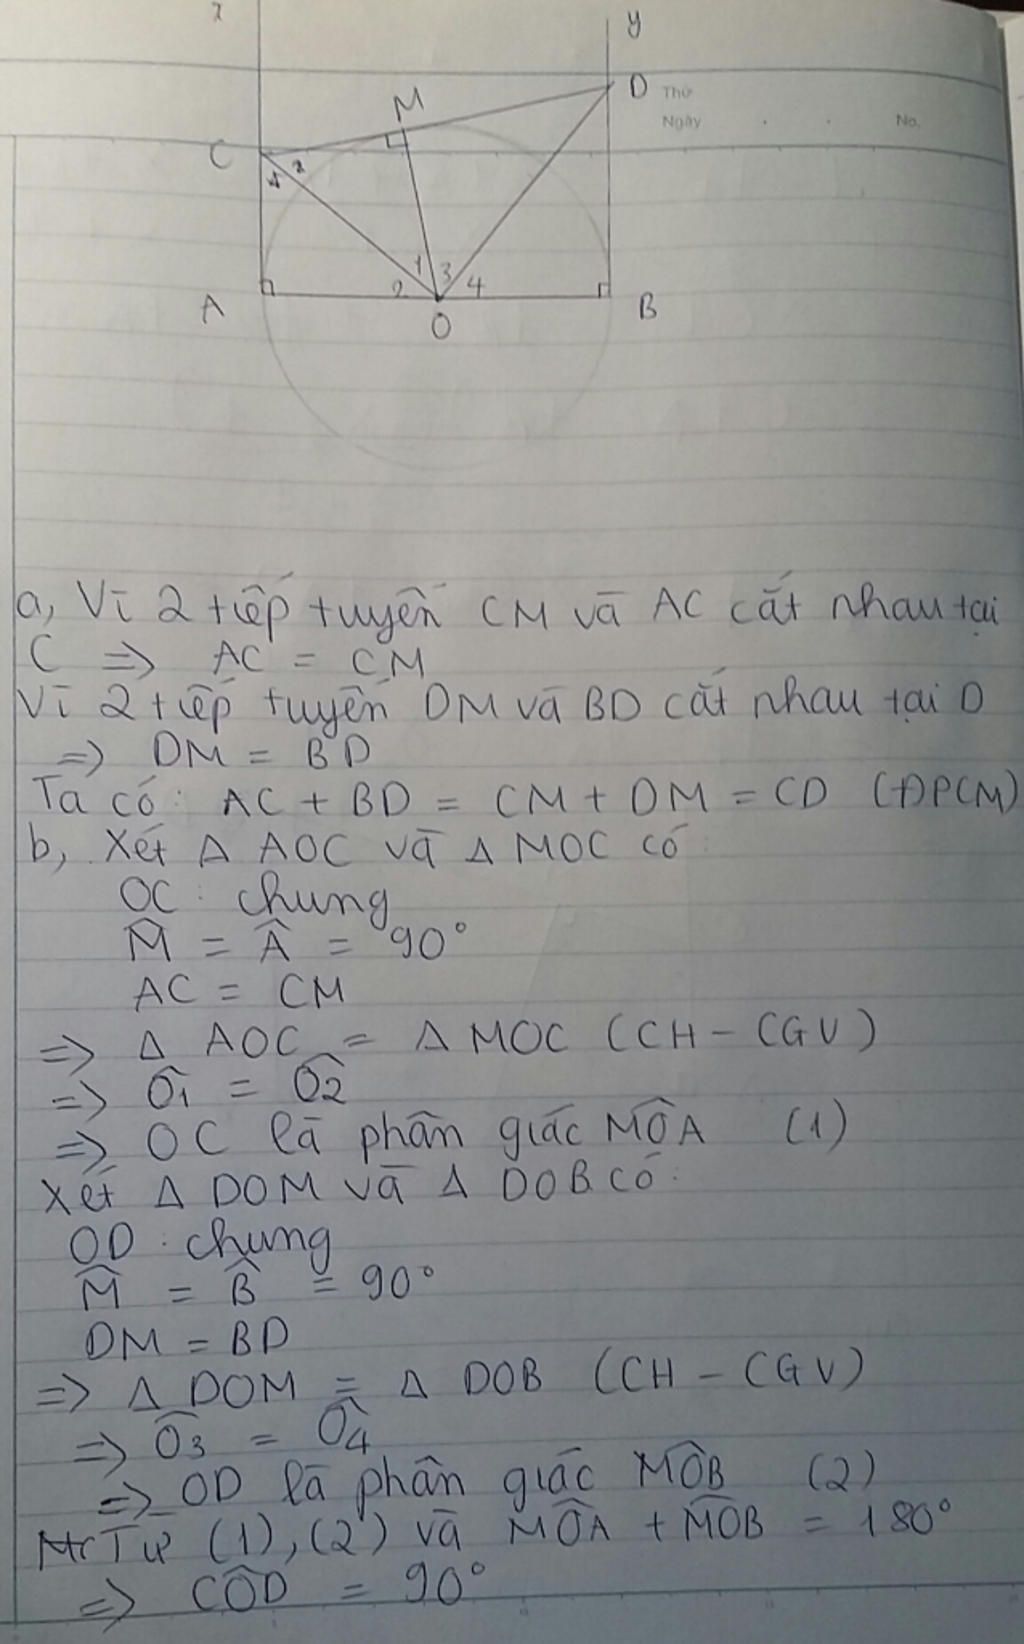 y
D
Thứ
Ngày . . No.
M
C
4 2
1 3
2 4
A
O
B
a, Vì 2 tiếp tuyến CM và AC cắt nhau tại
C => AC = CM
Vì 2 tiếp tuyến DM và BD cắt nhau tại D
=> DM = BD
Ta có: AC + BD = CM + DM = CD (ĐPCM)
b, Xét Δ AOC và Δ MOC có:
OC: chung
M̂ = Â = 90°
AC = CM
=> Δ AOC = Δ MOC (CH - CGV)
=> Ô1 = Ô2
=> OC là phân giác MÔA (1)
Xét Δ DOM và Δ DOB có:
OD: chung
M̂ = B̂ = 90°
DM = BD
=> Δ DOM = Δ DOB (CH - CGV)
=> Ô3 = Ô4
=> OD là phân giác MÔB (2)
Từ (1), (2) và MÔA + MÔB = 180°
=> CÔD = 90°